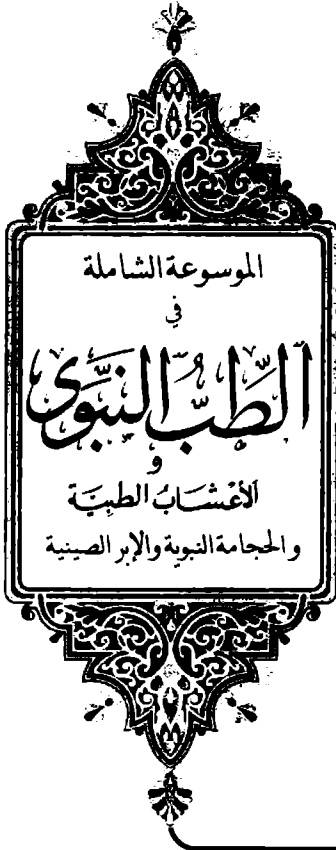 الموسوعة الشاملة
في
الطِّبُّ النَّبَوِي
و
الأعْشَابُ الطِبِيَّة
والحجامة النبوية والإبر الصينية